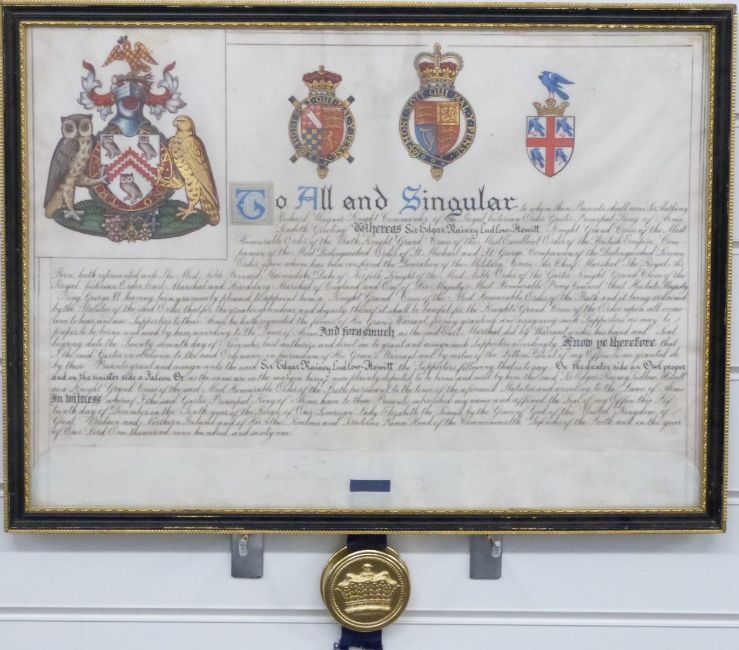 HONI SOIT QUI MAL Y PENSE
HONI SOIT QUI MAL Y PENSE
To All and Singular to whom these Presents shall come Sir Anthony
Richard Wagner Knight Commander of the Royal Victorian Order Garter Principal King of Arms
Sendeth Greeting Whereas Sir Edgar Rainey Ludlow-Hewitt Knight Grand Cross of the Most
Honourable Order of the Bath Knight Grand Cross of the Most Excellent Order of the British Empire, Com-
panion of the Most Distinguished Order of St. Michael and St. George Companion of the Distinguished Service
Order upon whom has been conferred the Decoration of the Military Cross Marshal of the Royal Air
Force hath represented unto The Most Noble Bernard Marmaduke Duke of Norfolk Knight of the Most Noble Order of the Garter Knight Grand Cross of the
Royal Victorian Order Earl Marshal and Hereditary Marshal of England and One of Her Majesty's Most Honourable Privy Council That His late Majesty
King George VI. having been graciously pleased to appoint him a Knight Grand Cross of the Most Honourable Order of the Bath and it being ordained
by the Statutes of the said Order that
to bear and use Supporters to their Arms he hath requested the favour of His Grace's Warrant for my granting and assigning such Supporters as may be
proper to be borne and used by him according to the Laws of Arms And forasmuch as the said Earl Marshal did by Warrant under his hand and Seal
bearing date the Twenty seventh day of November last authorise and direct me to grant and assign such Supporters accordingly Know ye therefore that
I the said Garter in obedience to the said Ordinance in pursuance of His Grace's Warrant and by virtue of the Letters Patent of my Office to me granted do
by these Presents grant and assign unto the said Sir Edgar Rainey Ludlow-Hewitt the Supporters following that is to say On the dexter side an Owl proper
and on the sinister side a Falcon Or as the same are in the margin hereof more plainly depicted to be borne and used by him the said Sir Edgar Rainey Ludlow-Hewitt
as a Knight Grand Cross of the said Most Honourable Order of the Bath pursuant to the tenor of the aforesaid Statutes and according to the Laws of Arms
In witness whereof I the said Garter Principal King of Arms have to these Presents subscribed my name and affixed the Seal of my Office this
day of December in the Tenth year of the Reign of Our Sovereign Lady Elizabeth the Second by the Grace of God of the United Kingdom of
Great Britain and Northern Ireland and of Her other Realms and Territories Queen Head of the Commonwealth Defender of the Faith and in the year
of Our Lord One thousand nine hundred and sixty one.